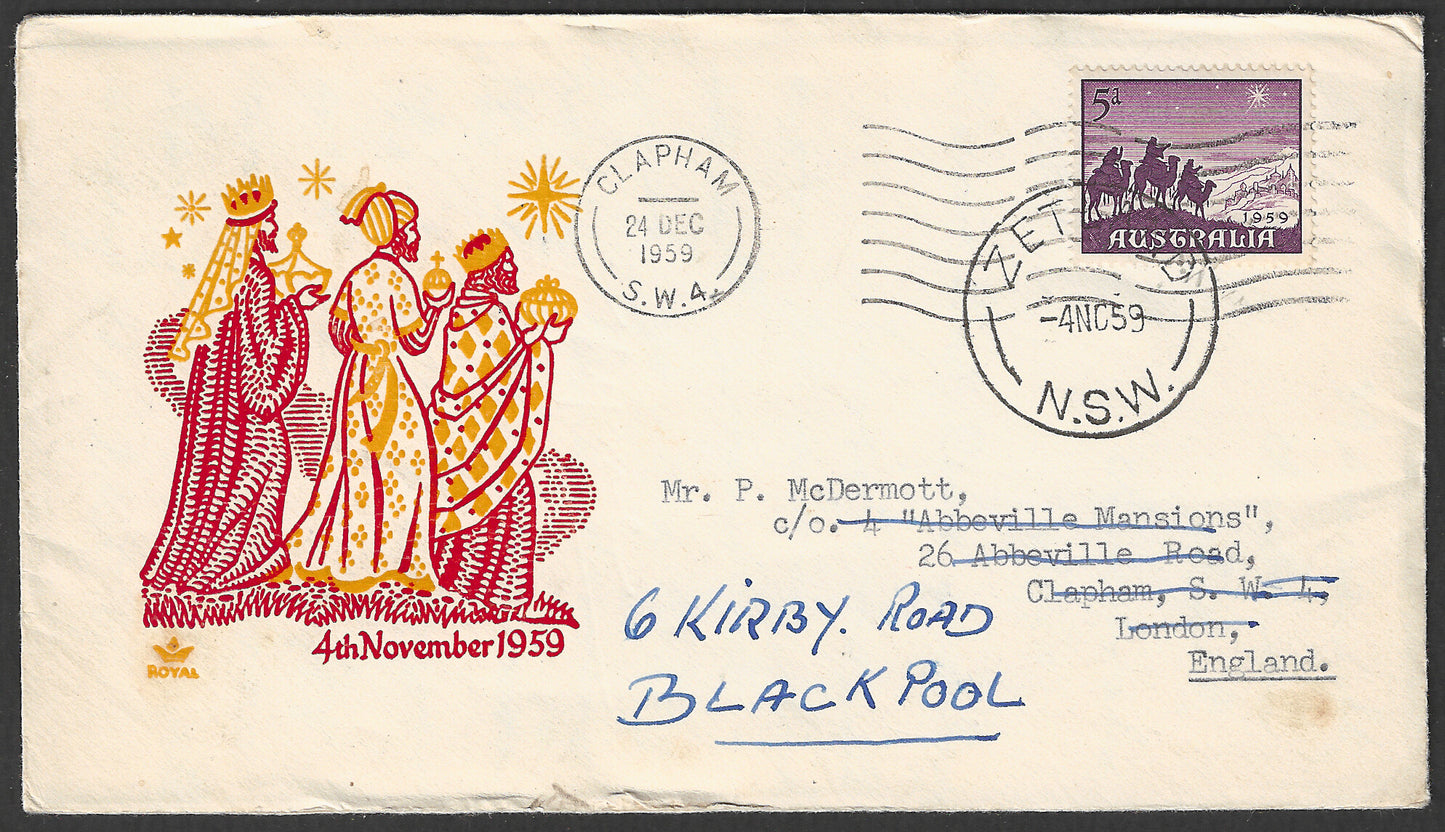 CLAPHAM
24 DEC
1959
S.W.4.
5d
1959
AUSTRALIA
-4NC59
N.S.W.
Mr. P. McDermott,
c/o. 4 "Abbeville Mansions",
26 Abbeville Road,
Clapham, S. W. 4,
London,
England.
6 KIRBY. ROAD
BLACKPOOL
4th November 1959
ROYAL